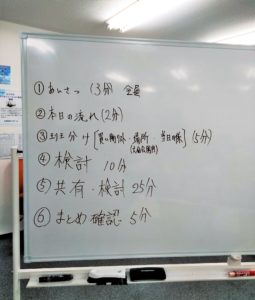 ① あいさつ (3分) 全員
② 本日の流れ (2分)
③ 班分け [買い物体・場所・当日の係] (5分)
④ 検討 10分
⑤ 共有・検討 25分
⑥ まとめ 確認 5分